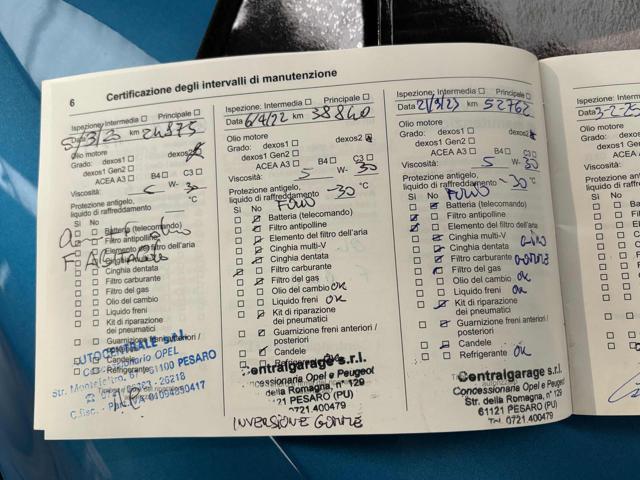 6 Certificazione degli intervalli di manutenzione
Ispezione: Intermedia Principale
Data 5/3/2 km 24875
Olio motore
Grado: dexos1 dexos2
dexos1 Gen2
ACEA A3 B4 C3
Viscosità: 5 W- 30
Protezione antigelo,
liquido di raffreddamento °C
Sì No
Batteria (telecomando)
Filtro antipolline
Elemento del filtro dell'aria
Cinghia
Cinghia dentata
Filtro carburante
Filtro del gas
Olio del cambio
Liquido freni
Kit di riparazione
dei pneumatici
Guarnizione freni anteriori /
posteriori
Candele
Refrigerante
UTOCENTRALE s.r.l.
OPEL
61100 PESARO
26218
01094890417
Ispezione: Intermedia Principale
Data 6/4/22 km 38840
Olio motore
Grado: dexos1 dexos2
dexos1 Gen2
ACEA A3 B4 C3
Viscosità: 5 W- 30
Protezione antigelo,
liquido di raffreddamento -30 °C
Sì No
Batteria (telecomando)
Filtro antipolline
Elemento del filtro dell'aria
Cinghia multi-V
Cinghia dentata
Filtro carburante
Filtro del gas
Olio del cambio OK
Liquido freni OK
Kit di riparazione
dei pneumatici
Guarnizione freni anteriori /
posteriori
Candele
Refrigerante OK
entralgarage s.r.l.
oncessionaria Opel e Peugeot
della Romagna, n° 129
121 PESARO (PU)
0721.400479
INVERSIONE GOMME
Ispezione: Intermedia Principale
Data 21/3/23 km 52762
Olio motore
Grado: dexos1 dexos2
dexos1 Gen2
ACEA A3 B4 C3
Viscosità: 5 W- 30
Protezione antigelo,
liquido di raffreddamento -30 °C
Sì No
Batteria (telecomando)
Filtro antipolline
Elemento del filtro dell'aria
Cinghia multi-V
Cinghia dentata
Filtro carburante
Filtro del gas
Olio del cambio OK
Liquido freni OK
Kit di riparazione
dei pneumatici
Guarnizione freni anteriori /
posteriori
Candele
Refrigerante OK
Centralgarage s.r.l.
Concessionaria Opel e Peugeot
Str. della Romagna, n° 129
61121 PESARO (PU)
Tel. 0721.400479
Ispezione:
Data
Olio motore
Grado:
Viscosità:
Protezione
liquido di
Sì No